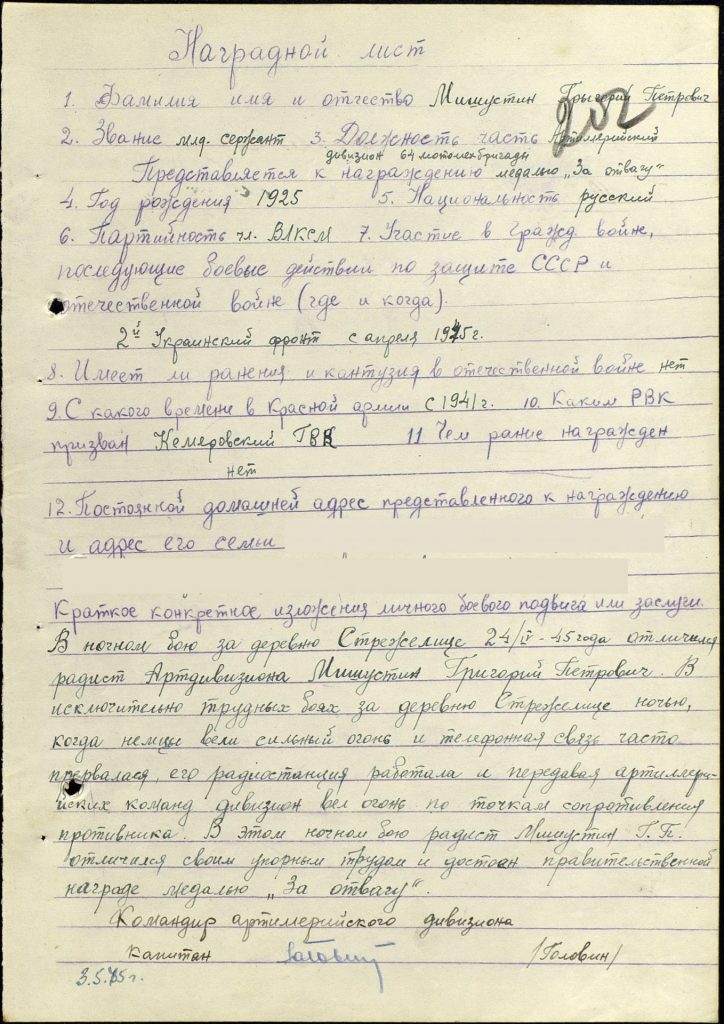 Наградной лист
202
1. Фамилия имя и отчество Мишустин Григорий Петрович
2. Звание мл. сержант 3. Должность часть Артиллерийский
дивизион 64 мотомехбригады
Представляется к награждению медалью „За отвагу“
4. Год рождения 1925 5. Национальность русский
6. Партийность чл. ВЛКСМ 7. Участие в гражд. войне,
последующие боевые действии по защите СССР и
отечественной войне (где и когда).
2й Украинский фронт с апреля 1945г.
8. Имеет ли ранения и кантузид в отечественной войне нет
9. С какого времени в Красной армии с 1941г. 10. Каким РВК
призван Кемеровский ГВК 11 Чем рание награжден
нет
12. Постоянной домашней адрес представленного к награждению
и адрес его семьи
Краткое конкретное изложения личного боевого подвига или заслуги.
В ночном бою за деревню Стрежелице 24/IV-45 года отличился
радист Артдивизиона Мишустин Григорий Петрович. В
исключительно трудных боях за деревню Стрежелице ночью,
когда немцы вели сильный огонь и телефонная связь часто
прервалася, его радиостанция работала и передавая артиллери-
йских команд дивизион вел огонь по точкам сопротивления
противника. В этом ночном бою радист Мишустин Г.П.
отличился своим упорным трудом и достоен правительственной
награде медалью „За отвагу“.
Командир артиллерийского дивизиона
капитан /Головин/
3.5.45г.